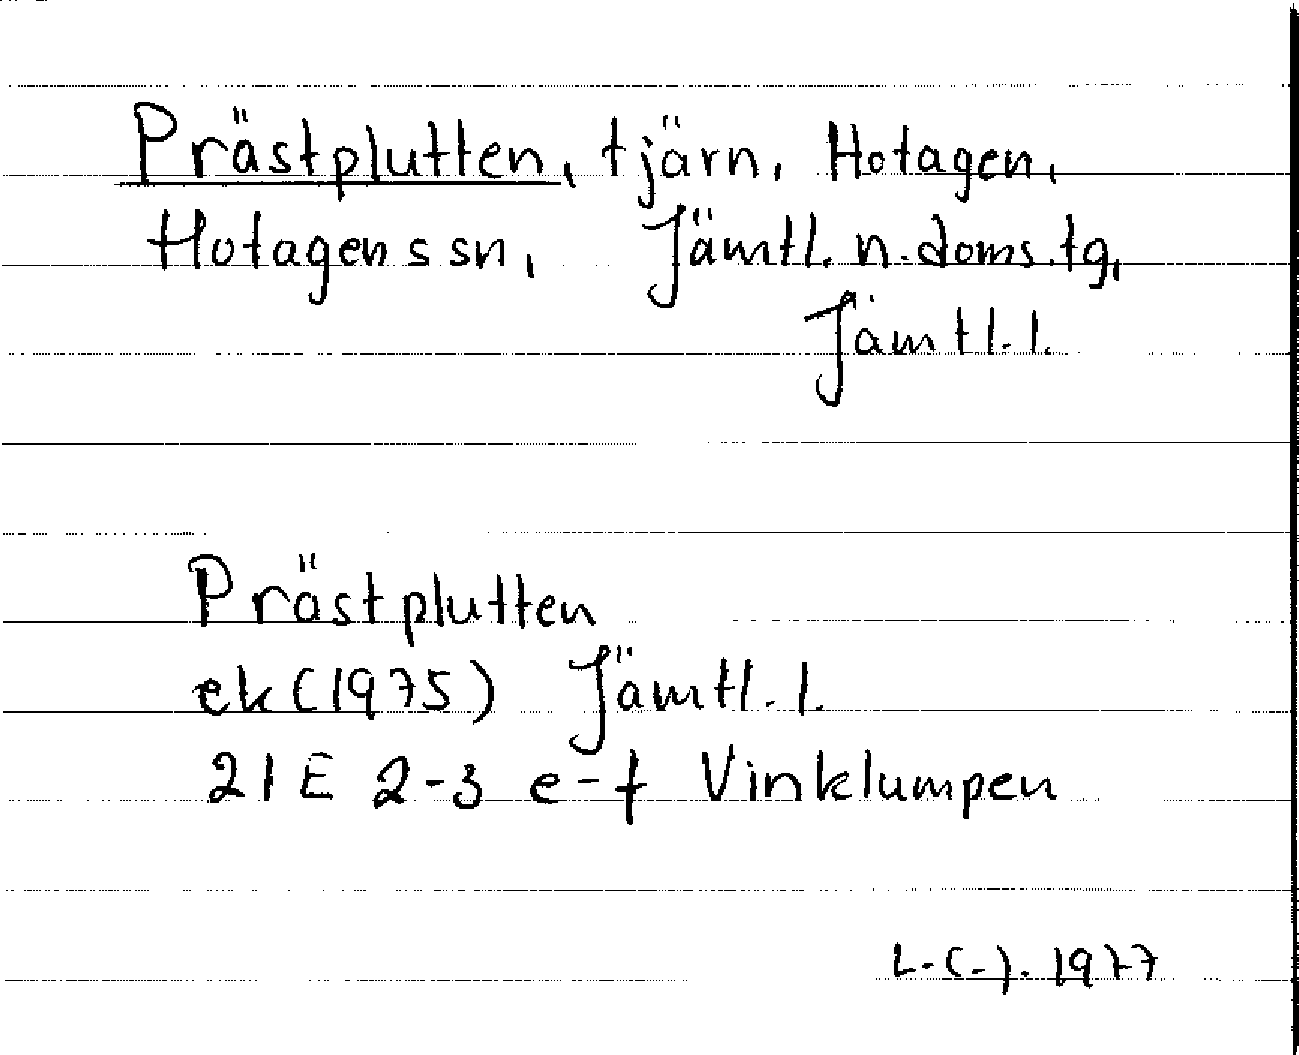 Prästplutten, tjärn, Hotagen,
Hotagens sn, Jämtl. n. doms.tg,
Jämtl. l.
Prästplutten
ek (1975) Jämtl. l.
21E 2-3 e-f Vinklumpen
1977